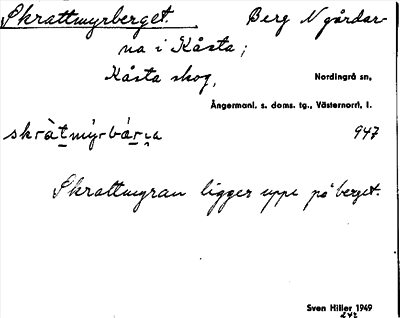 Skrattmyrberget. Berg N gårdar-
na i Kåsta;
Kåsta skog, Nordingrå sn,
Ångermanl. s. doms. tg., Västernorrl. l.
skràtmýrbárja 947
Skrattmyran ligger uppe på berget.
Sven Hiller 1949